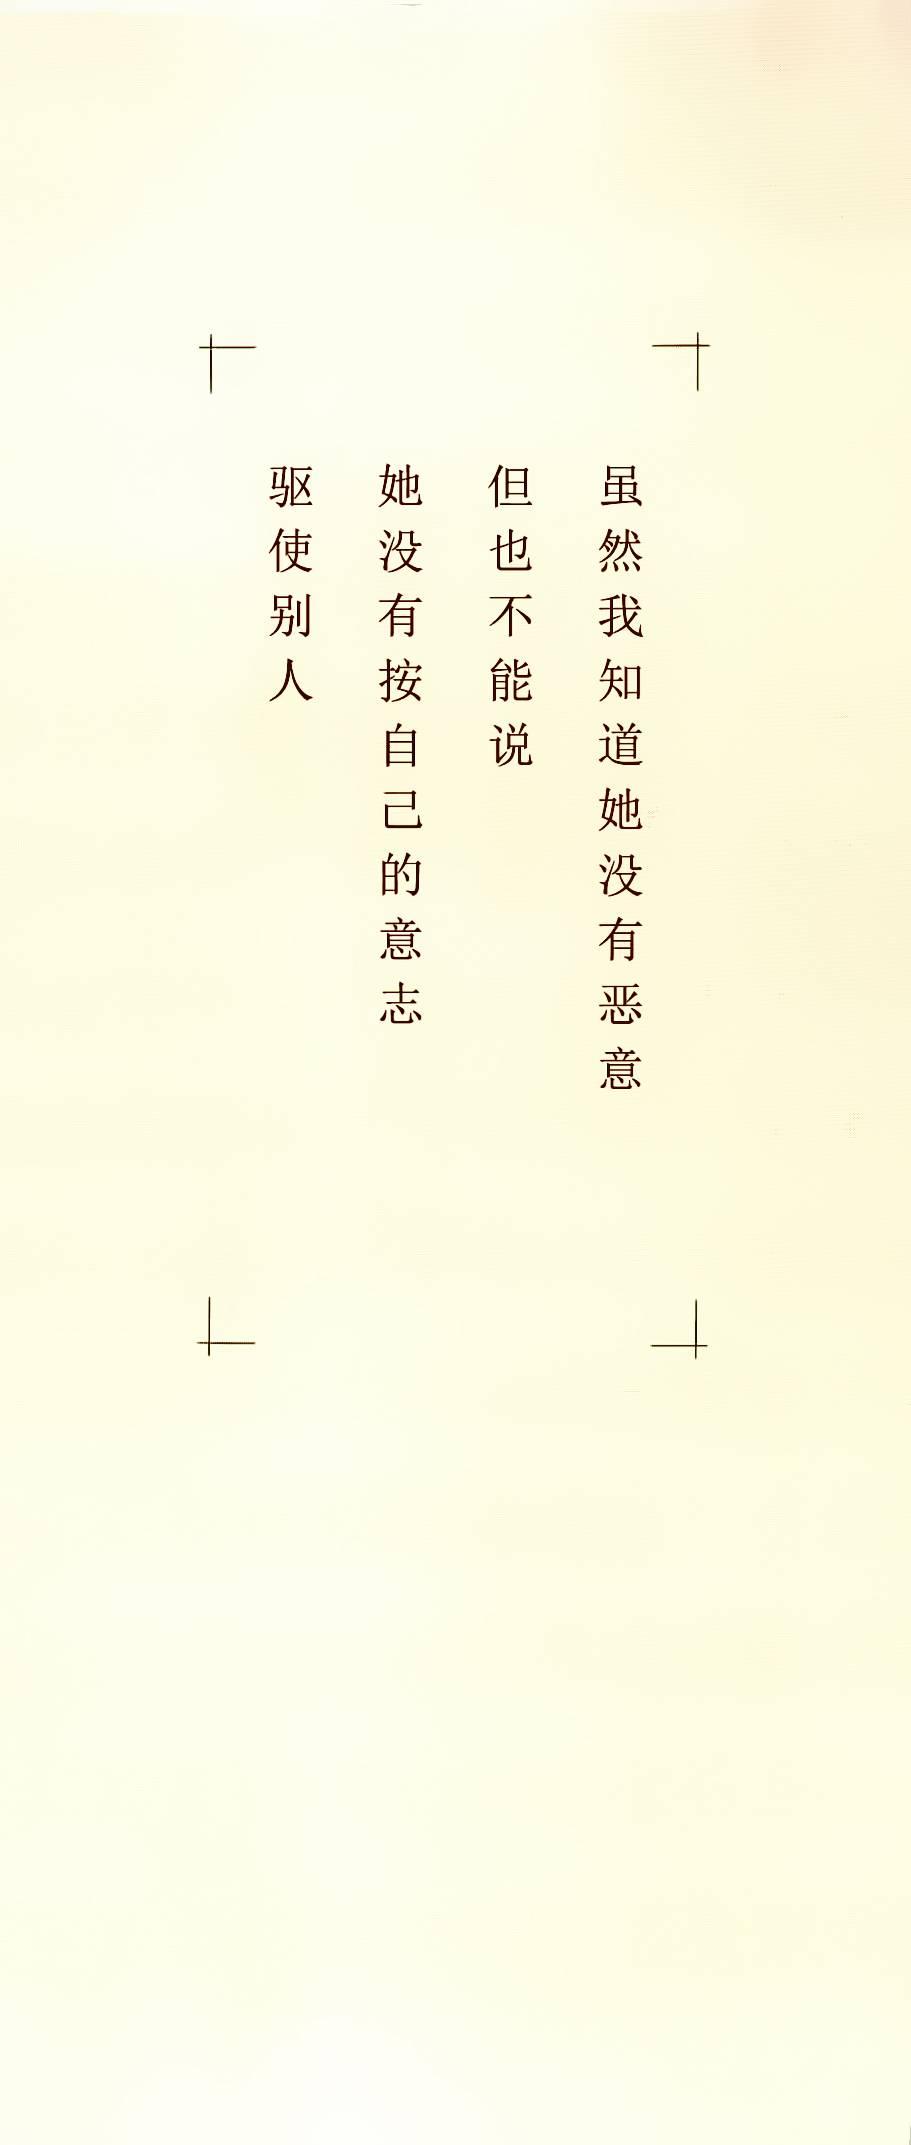 虽然我知道她没有恶意
但也不能说
她没有按自己的意志
驱使别人